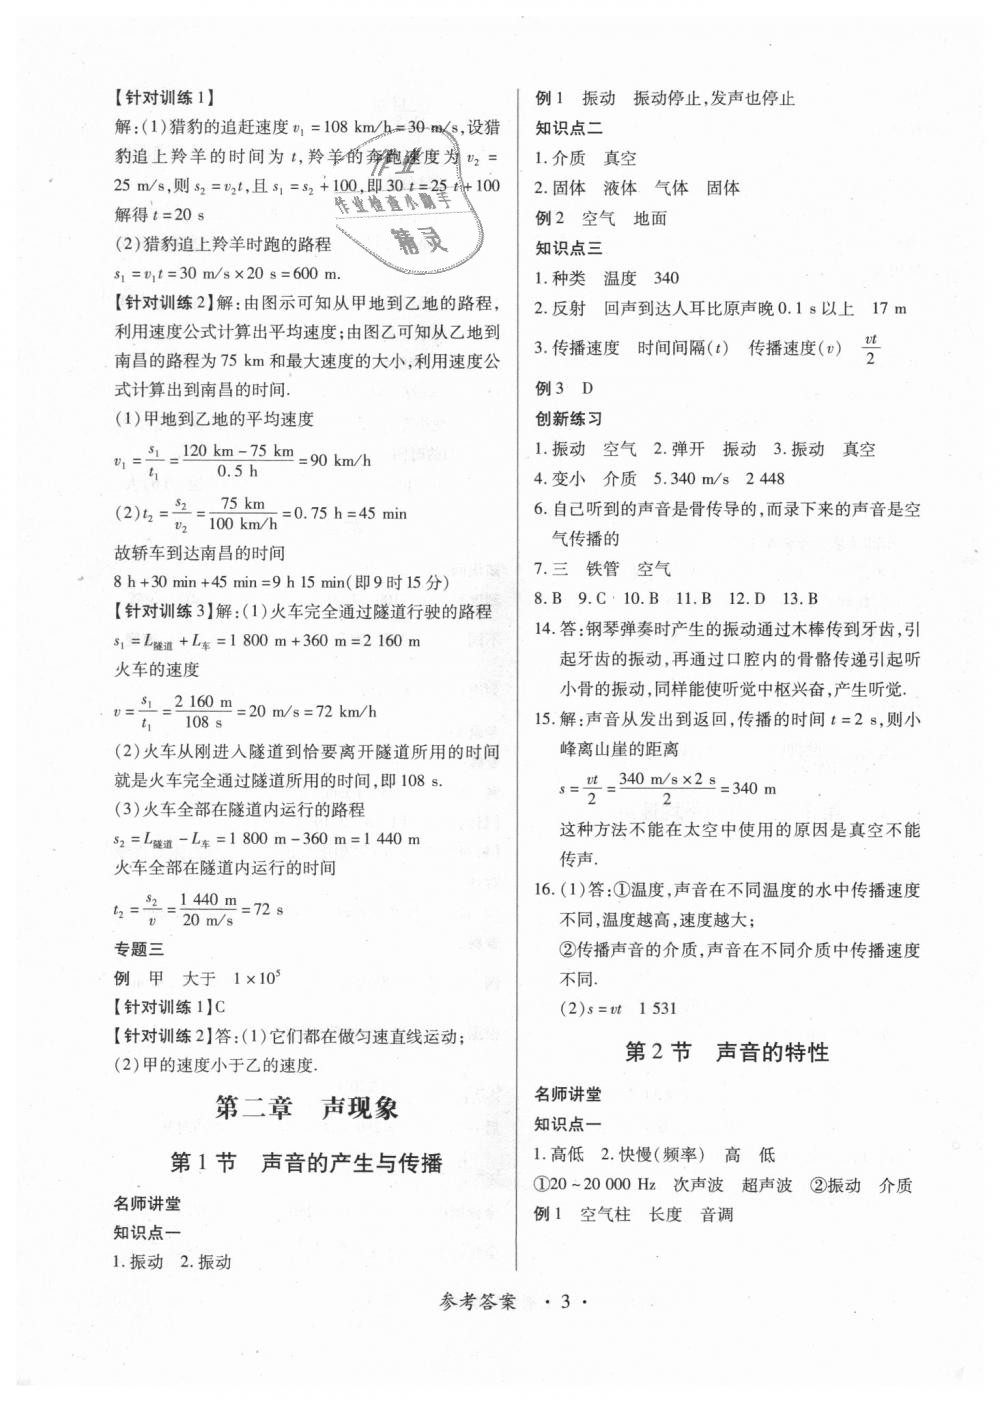 【针对训练1】
解:(1)猎豹的追赶速度v₁=108 km/h=30 m/s,设猎
豹追上羚羊的时间为t,羚羊的奔跑速度为v₂=
25 m/s,则s₂=v₂t,且s₁=s₂+100,即30 t=25 t+100
解得t=20 s
(2)猎豹追上羚羊时跑的路程
s₁=v₁t=30 m/s×20 s=600 m.
【针对训练2】解:由图示可知从甲地到乙地的路程,
利用速度公式计算出平均速度;由图乙可知从乙地到
南昌的路程为75 km和最大速度的大小,利用速度公
式计算出到南昌的时间.
(1)甲地到乙地的平均速度
v₁=s₁/t₁=(120 km-75 km)/0.5 h=90 km/h
(2)t₂=s₂/v₂=75 km/100 km/h=0.75 h=45 min
故轿车到达南昌的时间
8 h+30 min+45 min=9 h 15 min(即9时15分)
【针对训练3】解:(1)火车完全通过隧道行驶的路程
s₁=L隧道+L车=1 800 m+360 m=2 160 m
火车的速度
v=s₁/t₁=2 160 m/108 s=20 m/s=72 km/h
(2)火车从刚进入隧道到恰要离开隧道所用的时间
就是火车完全通过隧道所用的时间,即108 s.
(3)火车全部在隧道内运行的路程
s₂=L隧道-L车=1 800 m-360 m=1 440 m
火车全部在隧道内运行的时间
t₂=s₂/v=1 440 m/20 m/s=72 s
专题三
例 甲 大于 1×10⁵
【针对训练1】C
【针对训练2】答:(1)它们都在做匀速直线运动;
(2)甲的速度小于乙的速度.
第二章 声现象
第1节 声音的产生与传播
名师讲堂
知识点一
1.振动 2.振动
例1 振动 振动停止,发声也停止
知识点二
1.介质 真空
2.固体 液体 气体 固体
例2 空气 地面
知识点三
1.种类 温度 340
2.反射 回声到达人耳比原声晚0.1 s以上 17 m
3.传播速度 时间间隔(t) 传播速度(v) vt/2
例3 D
创新练习
1.振动 空气 2.弹开 振动 3.振动 真空
4.变小 介质 5.340 m/s 2 448
6.自己听到的声音是骨传导的,而录下来的声音是空
气传播的
7.三 铁管 空气
8.B 9.C 10.B 11.B 12.D 13.B
14.答:钢琴弹奏时产生的振动通过木棒传到牙齿,引
起牙齿的振动,再通过口腔内的骨骼传递引起听
小骨的振动,同样能使听觉中枢兴奋,产生听觉.
15.解:声音从发出到返回,传播的时间t=2 s,则小
峰离山崖的距离
s=vt/2=(340 m/s×2 s)/2=340 m
这种方法不能在太空中使用的原因是真空不能
传声.
16.(1)答:①温度,声音在不同温度的水中传播速度
不同,温度越高,速度越大;
②传播声音的介质,声音在不同介质中传播速度
不同.
(2)s=vt 1 531
第2节 声音的特性
名师讲堂
知识点一
1.高低 2.快慢(频率) 高 低
①20~20 000 Hz 次声波 超声波 ②振动 介质
例1 空气柱 长度 音调
参考答案 · 3 ·
作业
作业检查小助手
精灵